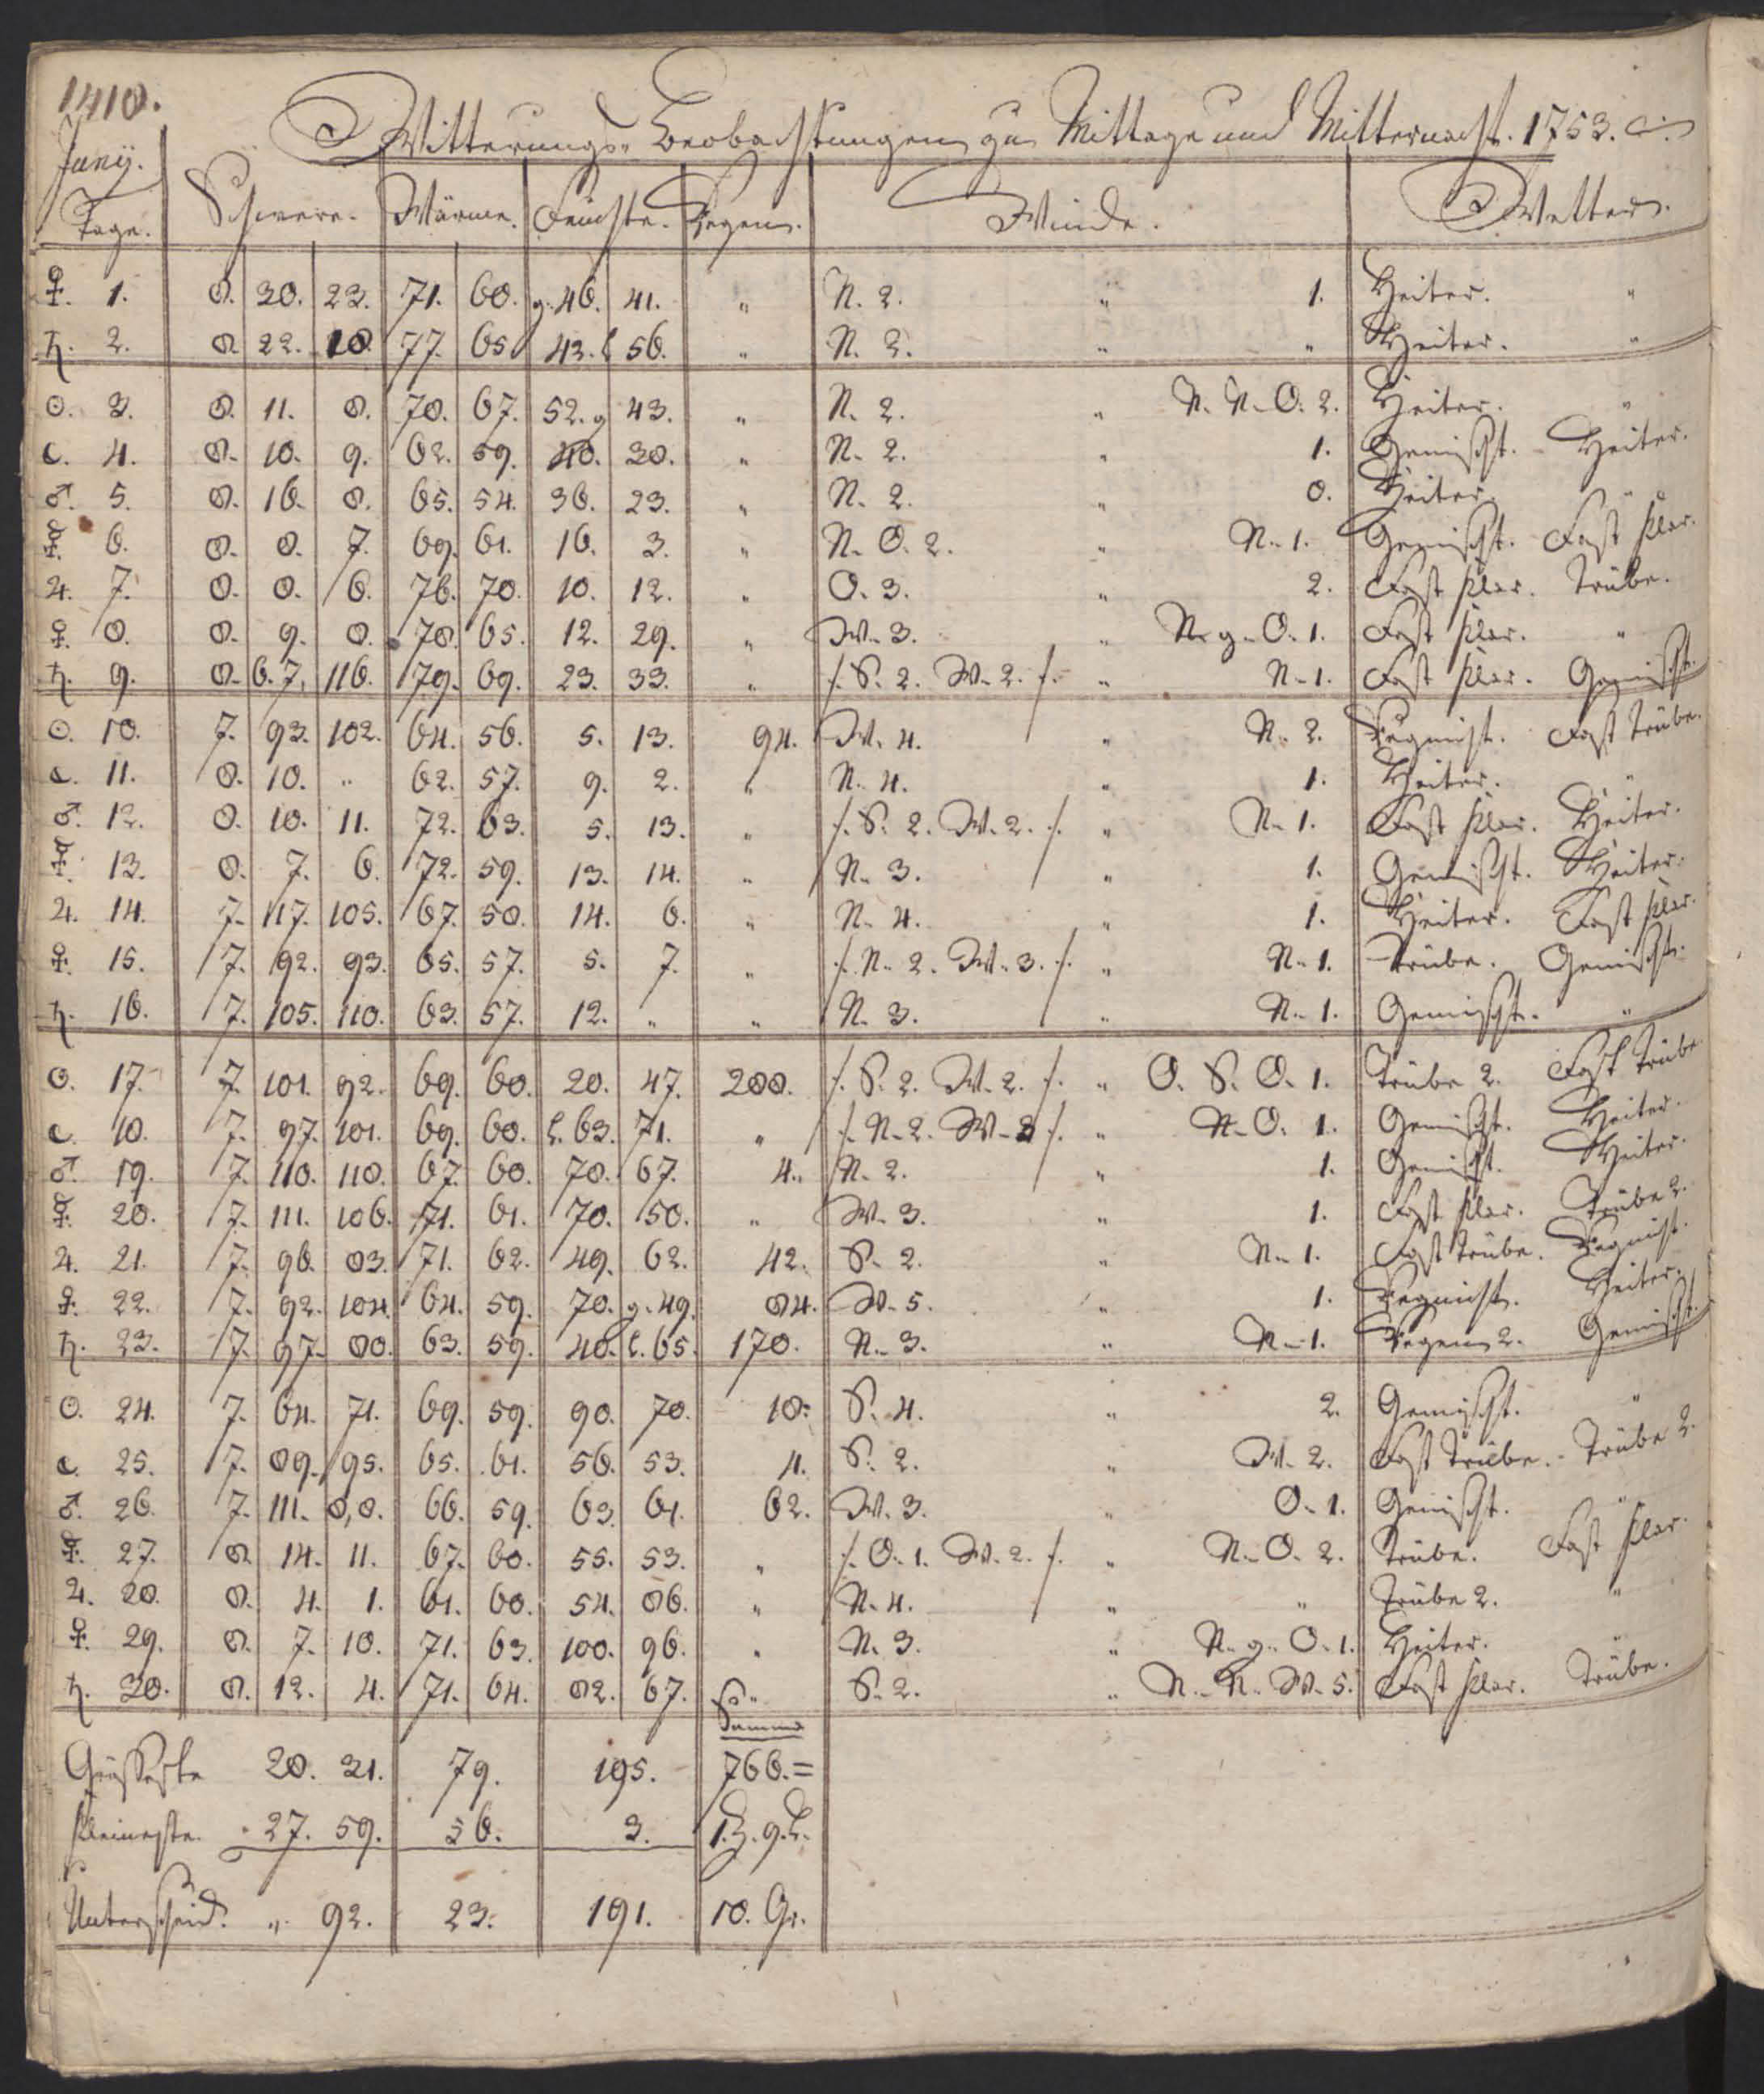 1418.
Junÿ.
Witterungs-Beobachtungen zu Mittage und Mitternacht. 1753.
Tage. Schwere. Wärme. Feuchte. Regen. Winde. Wetter.
♀. 1. 8. 30. 23. 71. 68. g. 46. 41. " N. 2. " 1. Heiter. "
♄. 2. 8. 22. 18. 77. 65. 43. l. 56. " N. 3. " " Heiter. "
☉. 3. 8. 11. 8. 78. 67. 52. g. 43. " N. 2. " N. N. O. 2. Heiter. "
☾. 4. 8. 10. 9. 62. 59. 48. 38. " N. 2. " 1. Gemischt. Heiter.
♂. 5. 8. 16. 8. 65. 54. 36. 23. " N. 2. " 0. Heiter. "
☿. 6. 8. 8. 7. 69. 61. 16. 3. " N. O. 2. " N. 1. Gemischt. Fast klar.
♃. 7. 8. 8. 6. 76. 70. 10. 12. " O. 3. " 2. Fast klar. Trübe.
♀. 8. 8. 9. 8. 78. 65. 12. 29. " W. 3. " N. g. O. 1. Fast klar. "
♄. 9. 8. 6.7, 116. 79. 69. 23. 33. " /. S. 2. W. 2. /. " N. 1. Fast klar. Gemischt.
☉. 10. 7. 93. 102. 64. 56. 5. 13. 94. W. 4. " N. 2. Regnicht. Fast trübe.
☾. 11. 8. 10. " 62. 57. 9. 2. " N. 4. " 1. Heiter. "
♂. 12. 8. 10. 11. 72. 63. 5. 13. " /. S. 2. W. 2. /. " N. 1. Fast klar. Heiter.
☿. 13. 8. 7. 6. 72. 59. 13. 14. " N. 3. " 1. Gemischt. Heiter.
♃. 14. 7. 117. 105. 67. 58. 14. 6. " N. 4. " 1. Heiter. Fast klar.
♀. 15. 7. 92. 93. 65. 57. 5. 7. " /. N. 2. W. 3. /. " N. 1. Trübe. Gemischt.
♄. 16. 7. 105. 110. 63. 57. 12. " " N. 3. " N. 1. Gemischt. "
☉. 17. 7. 101. 92. 69. 60. 20. 47. 288. /. S. 2. W. 2. /. " O. S. O. 1. Trübe 2. Fast trübe.
☾. 18. 7. 97. 101. 69. 60. l. 63. 71. " /. N. 2. W. 2 /. " N. O. 1. Gemischt. Heiter.
♂. 19. 7. 110. 110. 67. 60. 70. 67. 4. N. 2. " 1. Gemischt. Heiter.
☿. 20. 7. 111. 106. 71. 61. 70. 50. " W. 3. " 1. Fast klar. Trübe 2.
♃. 21. 7. 96. 83. 71. 62. 49. 62. 42. S. 2. " N. 1. Fast trübe. Regnicht.
♀. 22. 7. 92. 104. 64. 59. 70. g. 49. 84. W. 5. " 1. Regnicht. Heiter.
♄. 23. 7. 97. 80. 63. 59. 48. l. 65. 170. N. 3. " N. 1. Regen 2. Gemischt.
☉. 24. 7. 64. 71. 69. 59. 90. 70. 18. S. 4. " 2. Gemischt. "
☾. 25. 7. 89. 95. 65. 61. 56. 53. 4. S. 2. " W. 2. Fast trübe. Trübe 2.
♂. 26. 7. 111. 8,8. 66. 59. 63. 61. 62. W. 3. " O. 1. Gemischt. "
☿. 27. 8. 14. 11. 67. 60. 55. 53. " /. O. 1. W. 2. /. " N. O. 2. Trübe. Fast klar.
♃. 28. 8. 4. 1. 61. 60. 54. 86. " N. 4. " " Trübe 2. "
♀. 29. 8. 7. 10. 71. 63. 100. 96. " N. 3. " N. g. O. 1. Heiter. "
♄. 30. 8. 12. 4. 71. 64. 82. 67. " S. 2. " N. N. W. 5. Fast klar. Trübe.
Summa
Grösseste 28. 31. 79. 195. 766.=
kleineste. 27. 59. 56. 3. 1.Z. 9.L.
Unterscheid. " 92. 23. 191. 10. Gr.